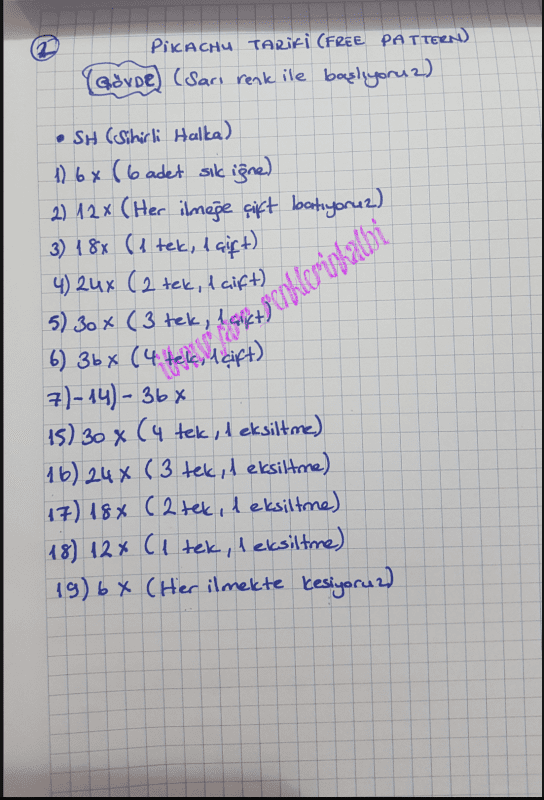 2
PİKACHU TARİFİ (FREE PATTERN)
GÖVDE (Sarı renk ile başlıyoruz)
• SH (Sihirli Halka)
1) 6 x (6 adet sık iğne)
2) 12 x (Her ilmeğe çift batıyoruz)
3) 18x (1 tek, 1 çift)
4) 24x (2 tek, 1 çift)
5) 30 x (3 tek, 1 çift)
6) 36 x (4 tek, 1 çift)
7)-14)- 36 x
15) 30 x (4 tek, 1 eksiltme)
16) 24 x (3 tek, 1 eksiltme)
17) 18x (2 tek, 1 eksiltme)
18) 12 x (1 tek, 1 eksiltme)
19) 6 x (Her ilmekte kesiyoruz)